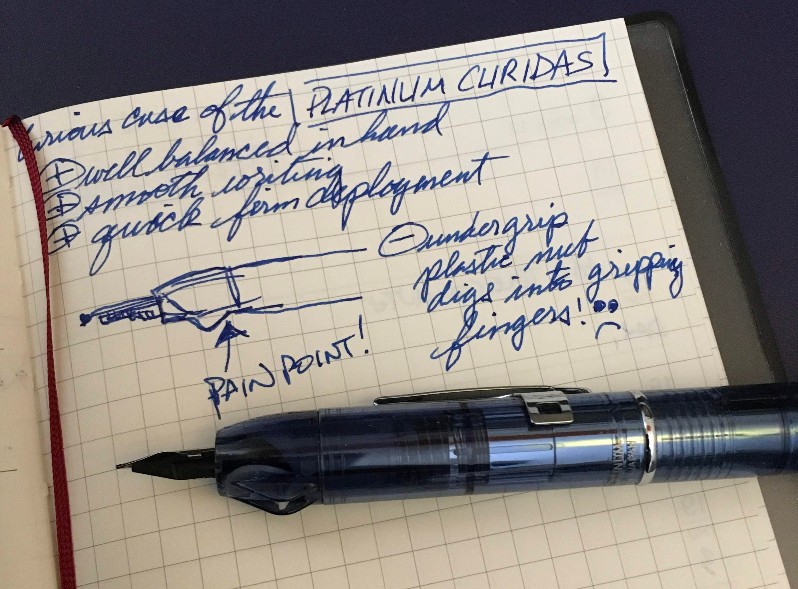 Curious case of the PLATINUM CURIDAS
⊕ well balanced in hand
⊕ smooth writing
⊕ quick firm deployment
⊖ undergrip
plastic nub
digs into gripping
fingers!
PAIN POINT!
PLATINUM
JAPAN